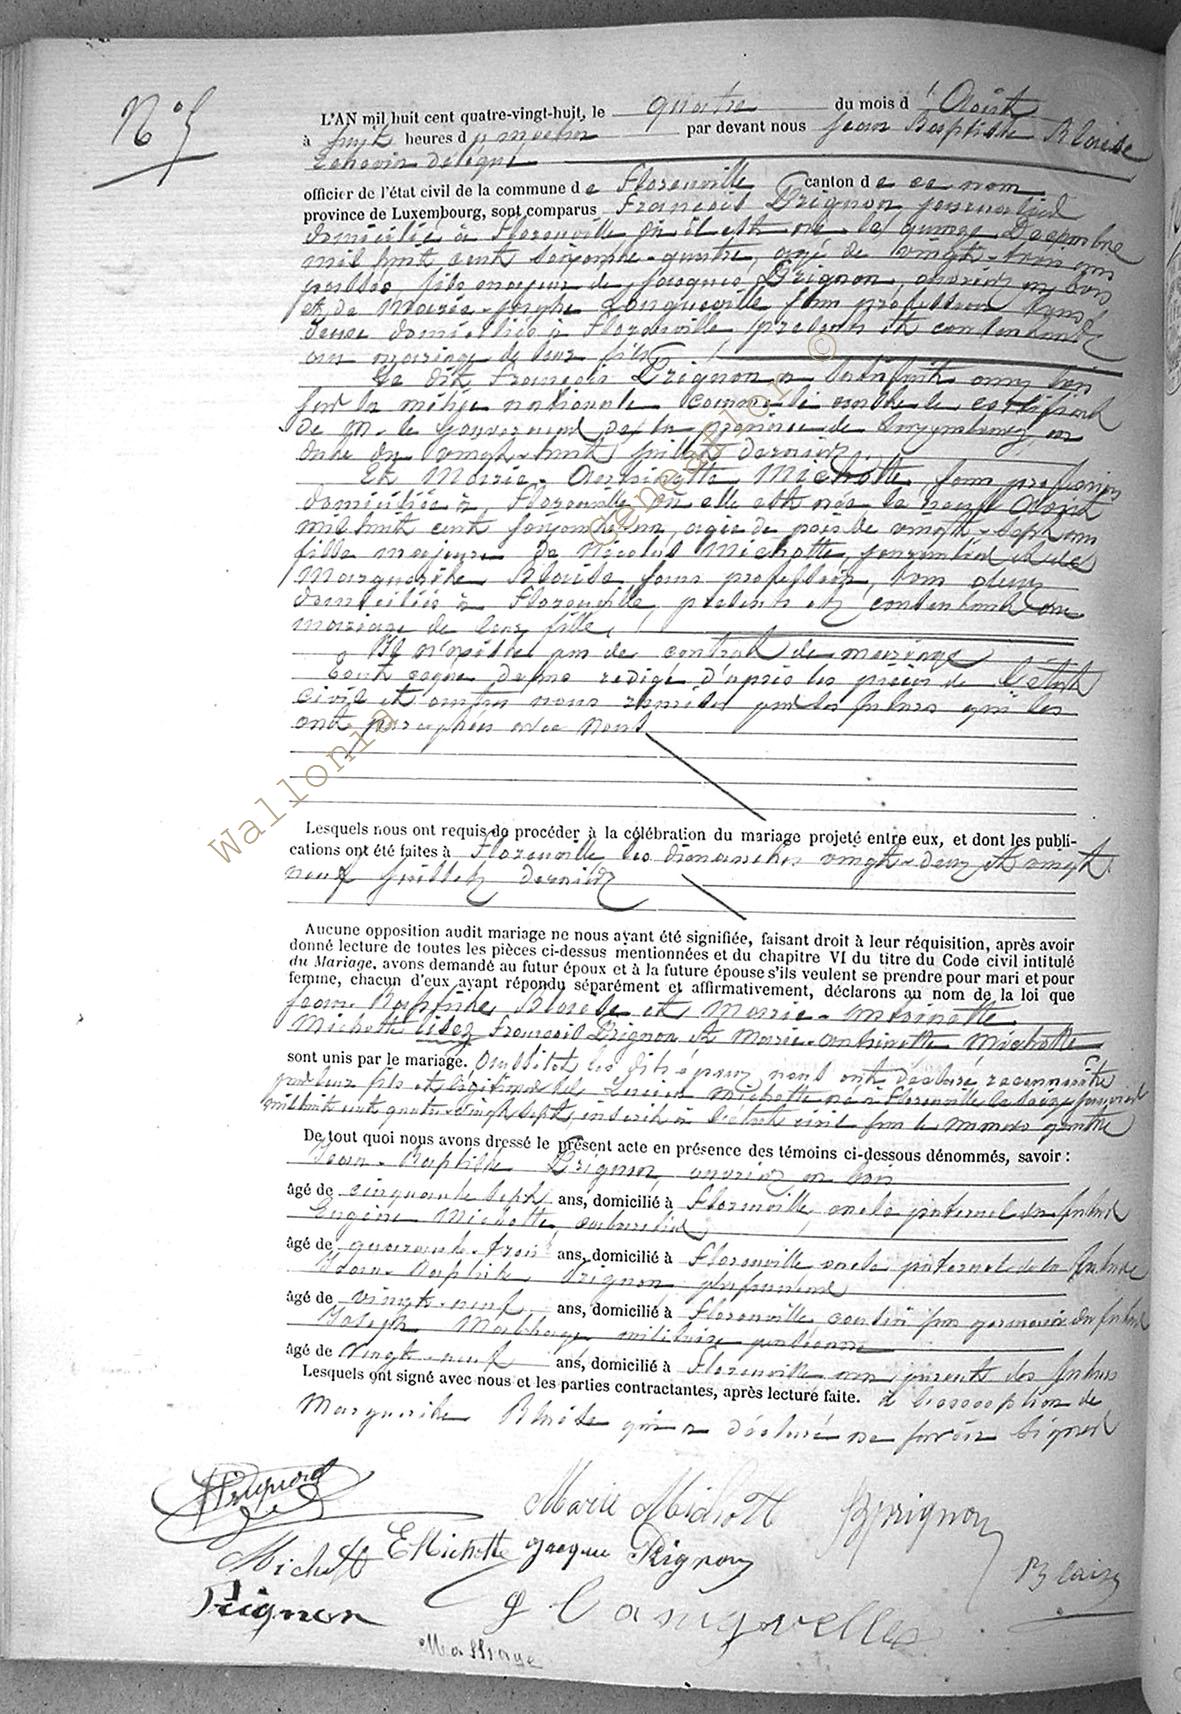 N° 5
L'AN mil huit cent quatre-vingt-huit, le quatre du mois d'Août
à huit heures du matin par devant nous Jean Baptiste Blaise
Echevin délégué
officier de l'état civil de la commune de Florenville canton de ce nom
province de Luxembourg, sont comparus François Prignon journalier
domicilié à Florenville où il est né le quinze Décembre
mil huit cent soixante-quatre, agé de vingt-trois ans
passés, fils majeur de Jacques Prignon, ouvrier en bois
et de Marie-Josephe Langueville sans profession tous
deux domiciliés à Florenville présents et consentants
au mariage de leur fils
Le dit François Prignon a satisfait aux lois
sur la milice nationale comme le constate le certificat
de M. le Gouverneur de la province de Luxembourg en
date du vingt-huit juillet dernier.
Et Marie-Antoinette Michotte, sans profession
domiciliée à Florenville où elle est née le neuf Août
mil huit cent soixante-un, agée de près de vingt-sept ans
fille majeure de Nicolas Michotte, journalier et de
Marguerite Blaise, sans profession, tous deux
domiciliés à Florenville, présents et consentant au
mariage de leur fille,
Il n'existe pas de contrat de mariage
Tout ce que dessus rédigé d'après les pièces de l'état
civil et autres nous remises par les futurs qui les
ont paraphées avec nous
Lesquels nous ont requis de procéder à la célébration du mariage projeté entre eux, et dont les publi-
cations ont été faites à Florenville les dimanches vingt-deux et vingt
neuf juillet dernier
Aucune opposition audit mariage ne nous ayant été signifiée, faisant droit à leur réquisition, après avoir
donné lecture de toutes les pièces ci-dessus mentionnées et du chapitre VI du titre du Code civil intitulé
du Mariage, avons demandé au futur époux et à la future épouse s'ils veulent se prendre pour mari et pour
femme, chacun d'eux ayant répondu séparément et affirmativement, déclarons au nom de la loi que
Jean-Baptiste Blaise et Marie-Antoinette
Michotte lisez François Prignon et Marie-Antoinette Michotte
sont unis par le mariage. Aussitot les dits époux nous ont déclaré reconnaître
pour leur fils et légitimer Lucien Michotte né à Florenville le janvier
mil huit cent quatre-vingt sept, inscrit à l'état civil sous le numéro quatre
De tout quoi nous avons dressé le présent acte en présence des témoins ci-dessous dénommés, savoir :
Jean-Baptiste Prignon, ouvrier en bois
âgé de cinquante sept ans, domicilié à Florenville, oncle paternel du futur
Eugène Michotte, cabaretier
âgé de quarante-trois ans, domicilié à Florenville oncle paternel de la future
Jean-Baptiste Prignon plafonneur
âgé de vingt-neuf ans, domicilié à Florenville, cousin germain du futur
Joseph Massage militaire pensionné
âgé de vingt-neuf ans, domicilié à Florenville non parent des futurs
Lesquels ont signé avec nous et les parties contractantes, après lecture faite. à l'exception de
Marguerite Blaise qui a déclaré ne savoir signer
Prignon Marie Michott Prignon
Michott EMichotte Jacque Prignon Blaise
Prignon
Massage
Wallonia Geneaflor ©